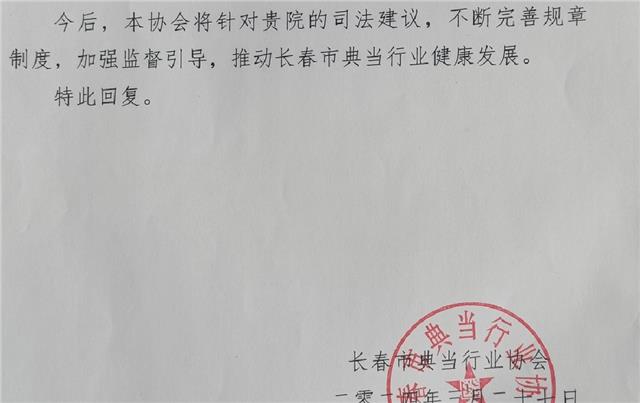 今后，本协会将针对贵院的司法建议，不断完善规章
制度，加强监督引导，推动长春市典当行业健康发展。
特此回复。
长春市典当行业协会
春市典当行业协